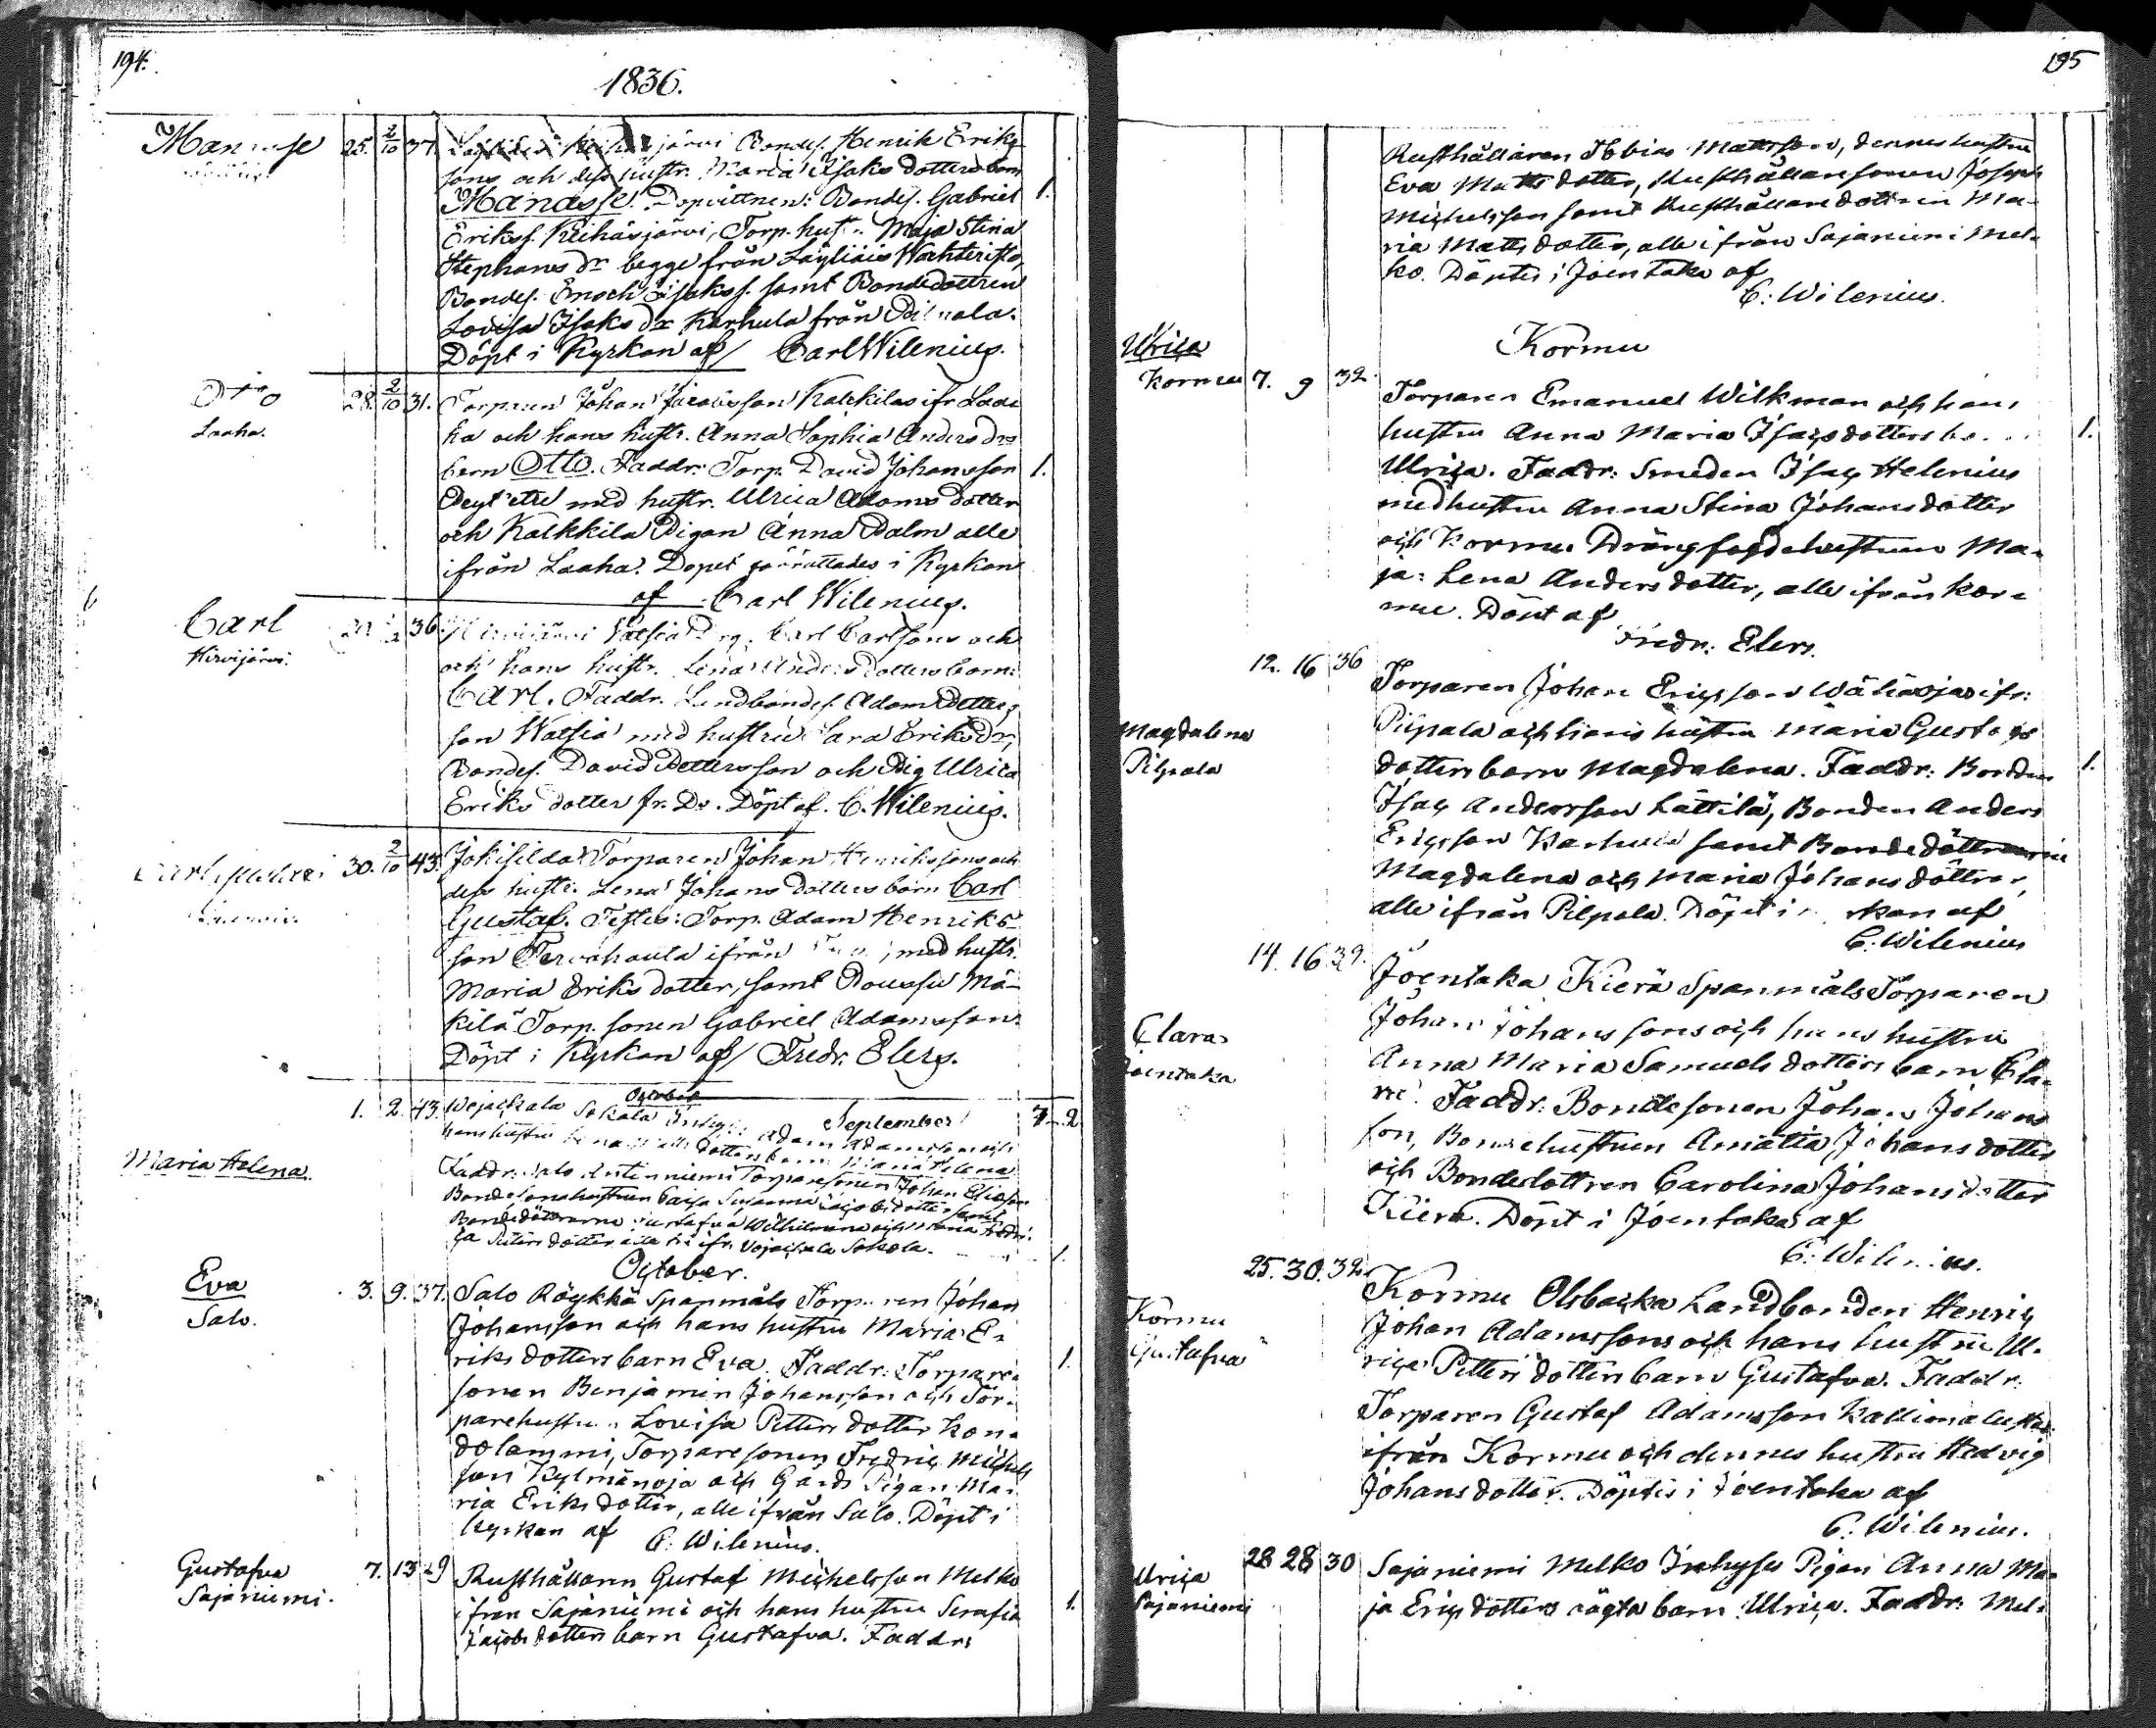 194.
1836.
Manasse 25. 2/10 37. järvi Bondes. Henrik Eriks
sons och dess hustr. Maria Isaks dotters barn
Manasse. Dopvittnen: Bondes. Gabriel 1.
Erikss. Keihäsjärvi, Torp. hustr. Maja Stina
Stephans dr begge från Läyliäis Wachteristo,
Bondes. Enoch Isakss. samt Bondedottren
Lovisa Isaks dr Karhula från Pilpala.
Döpt i Kyrkan af Carl Wilenius.
Otto 28. 2/10 31. Torparen Johan Jacobsson Kalkkilas ifr. Laa
Laaha.
ha och hans hustr. Anna Sophia Anders drs
barn Otto. Faddr: Torp. David Johansson 1.
med hustr. Ulrica Adams dotter
och Kalkkila Pigan Anna Palm alle
ifrån Laaha. Dopet förrättades i Kyrkan
af Carl Wilenius.
Carl 36. Hirvijärvi Carl Carlssons och
Hirvijärvi.
och hans hustr. Lena Anders dotters barn:
Carl. Faddr. Landbondes. Adam Petters
son Watsia med hustru Sara Eriks dr,
Bondes. David Pettersson och Pig Ulrica
Eriks dotter fr. Do. Döpt af C. Wilenius.
30. 2/10 43. Torparen Johan Henrikssons och
dess hustr. Lena Johans dotters barn Carl
Gustaf. Testes: Torp. Adam Henriks-
son Tervahauta ifrån med hustr.
Maria Eriks dotter, samt Roussu Mä-
kilä Torp. sonen Gabriel Adamsson.
Döpt i Kyrkan af Fredr. Elers.
October
1. 2. 43. September 7 - 2
Adam Adamsson och
hans hustru Lena dotters barn Maria Helena
Maria Helena.
Faddr: Salo Torparesonen Johan Eliasson
Bondesonehustrun Caisa Susanna dotter samt
Bondedöttrarne Gustafva Wilhelmina och
ca Petters dotter alle ifr. Vojackala Sokala. 1.
October.
Eva 3. 9. 37. Salo Röykkä Spanmåls Torparen Johan
Salo.
Johansson och hans hustru Maria E-
riks dotters barn Eva. Faddr: Torpare- 1.
sonen Benjamin Johansson och Tor-
parehustrun Lovisa Petters dotter Kon-
dolammi, Torparesonen Fredric Michels
son Kylmänoja och Gårds Pigan Ma-
ria Eriks dotter, alle ifrån Salo. Döpt i
Kyrkan af C. Wilenius.
Gustafva 7. 13 29 Rusthållaren Gustaf Michelsson Melko
Sajaniemi.
ifrån Sajaniemi och hans hustru Serafia 1.
Jacobs dotters barn Gustafva. Faddr:
195
Rusthållaren Tobias Mattsson, dennes hustru
Eva Matts dotter, Rusthållaresonen Joseph
Michelsson samt Rusthållaredottren Ma-
ria Matts dotter, alle ifrån Sajaniemi Mel-
ko. Döptes i Joentaka af
C. Wilenius.
Kormu
Ulrica
Kormu 7. 9 32. Torparen Emanuel Wilkman och hans
hustru Anna Maria Isacs dotters 1.
Ulrica. Faddr: Smeden Isac Helenius
med hustru Anna Stina Johans dotter
och Kormu Drängfogdehustrun Ma-
ja Lena Anders dotter, alle ifrån Kor-
mu. Döpt af
Fredr. Elers.
12. 16 36 Torparen Johan Ericssons Wähäojas ifr:
Magdalena
Pilpala
Pilpala och hans hustru Maria Gustafs
dotters barn Magdalena. Faddr: Bonden 1.
Isac Andersson Lättilä, Bonden Anders
Ericsson Karhula samt Bondedöttrarne
Magdalena och Maria Johans döttrar,
alle ifrån Pilpala. Döpt i Kyrkan af
C. Wilenius
14. 16 32. Joentaka Kierä Spanmåls Torparen
Johan Johanssons och hans hustru
Clara
Joentaka
Anna Maria Samuels dotters barn Cla-
ra. Faddr: Bondesonen Johan Johans
son, Bondehustrun Amalia Johans dotter
och Bondedottren Carolina Johans dotter
Kierä. Döpt i Joentaka af
C. Wilenius.
25. 30. 32 Kormu Olsbacka Landbonden Henric
Kormu
Gustafva
Johan Adamssons och hans hustru Ul-
rica Petters dotters barn Gustafva. Faddr:
Torparen Gustaf Adamsson
ifrån Kormu och dennes hustru Hedvig
Johans dotter. Döptes i Joentaka af
C. Wilenius.
Ulrica 28 28 30 Sajaniemi Melko Inhyses Pigan Anna Ma-
Sajaniemi
ja Erics dotters oägta barn Ulrica. Faddr: Mel-